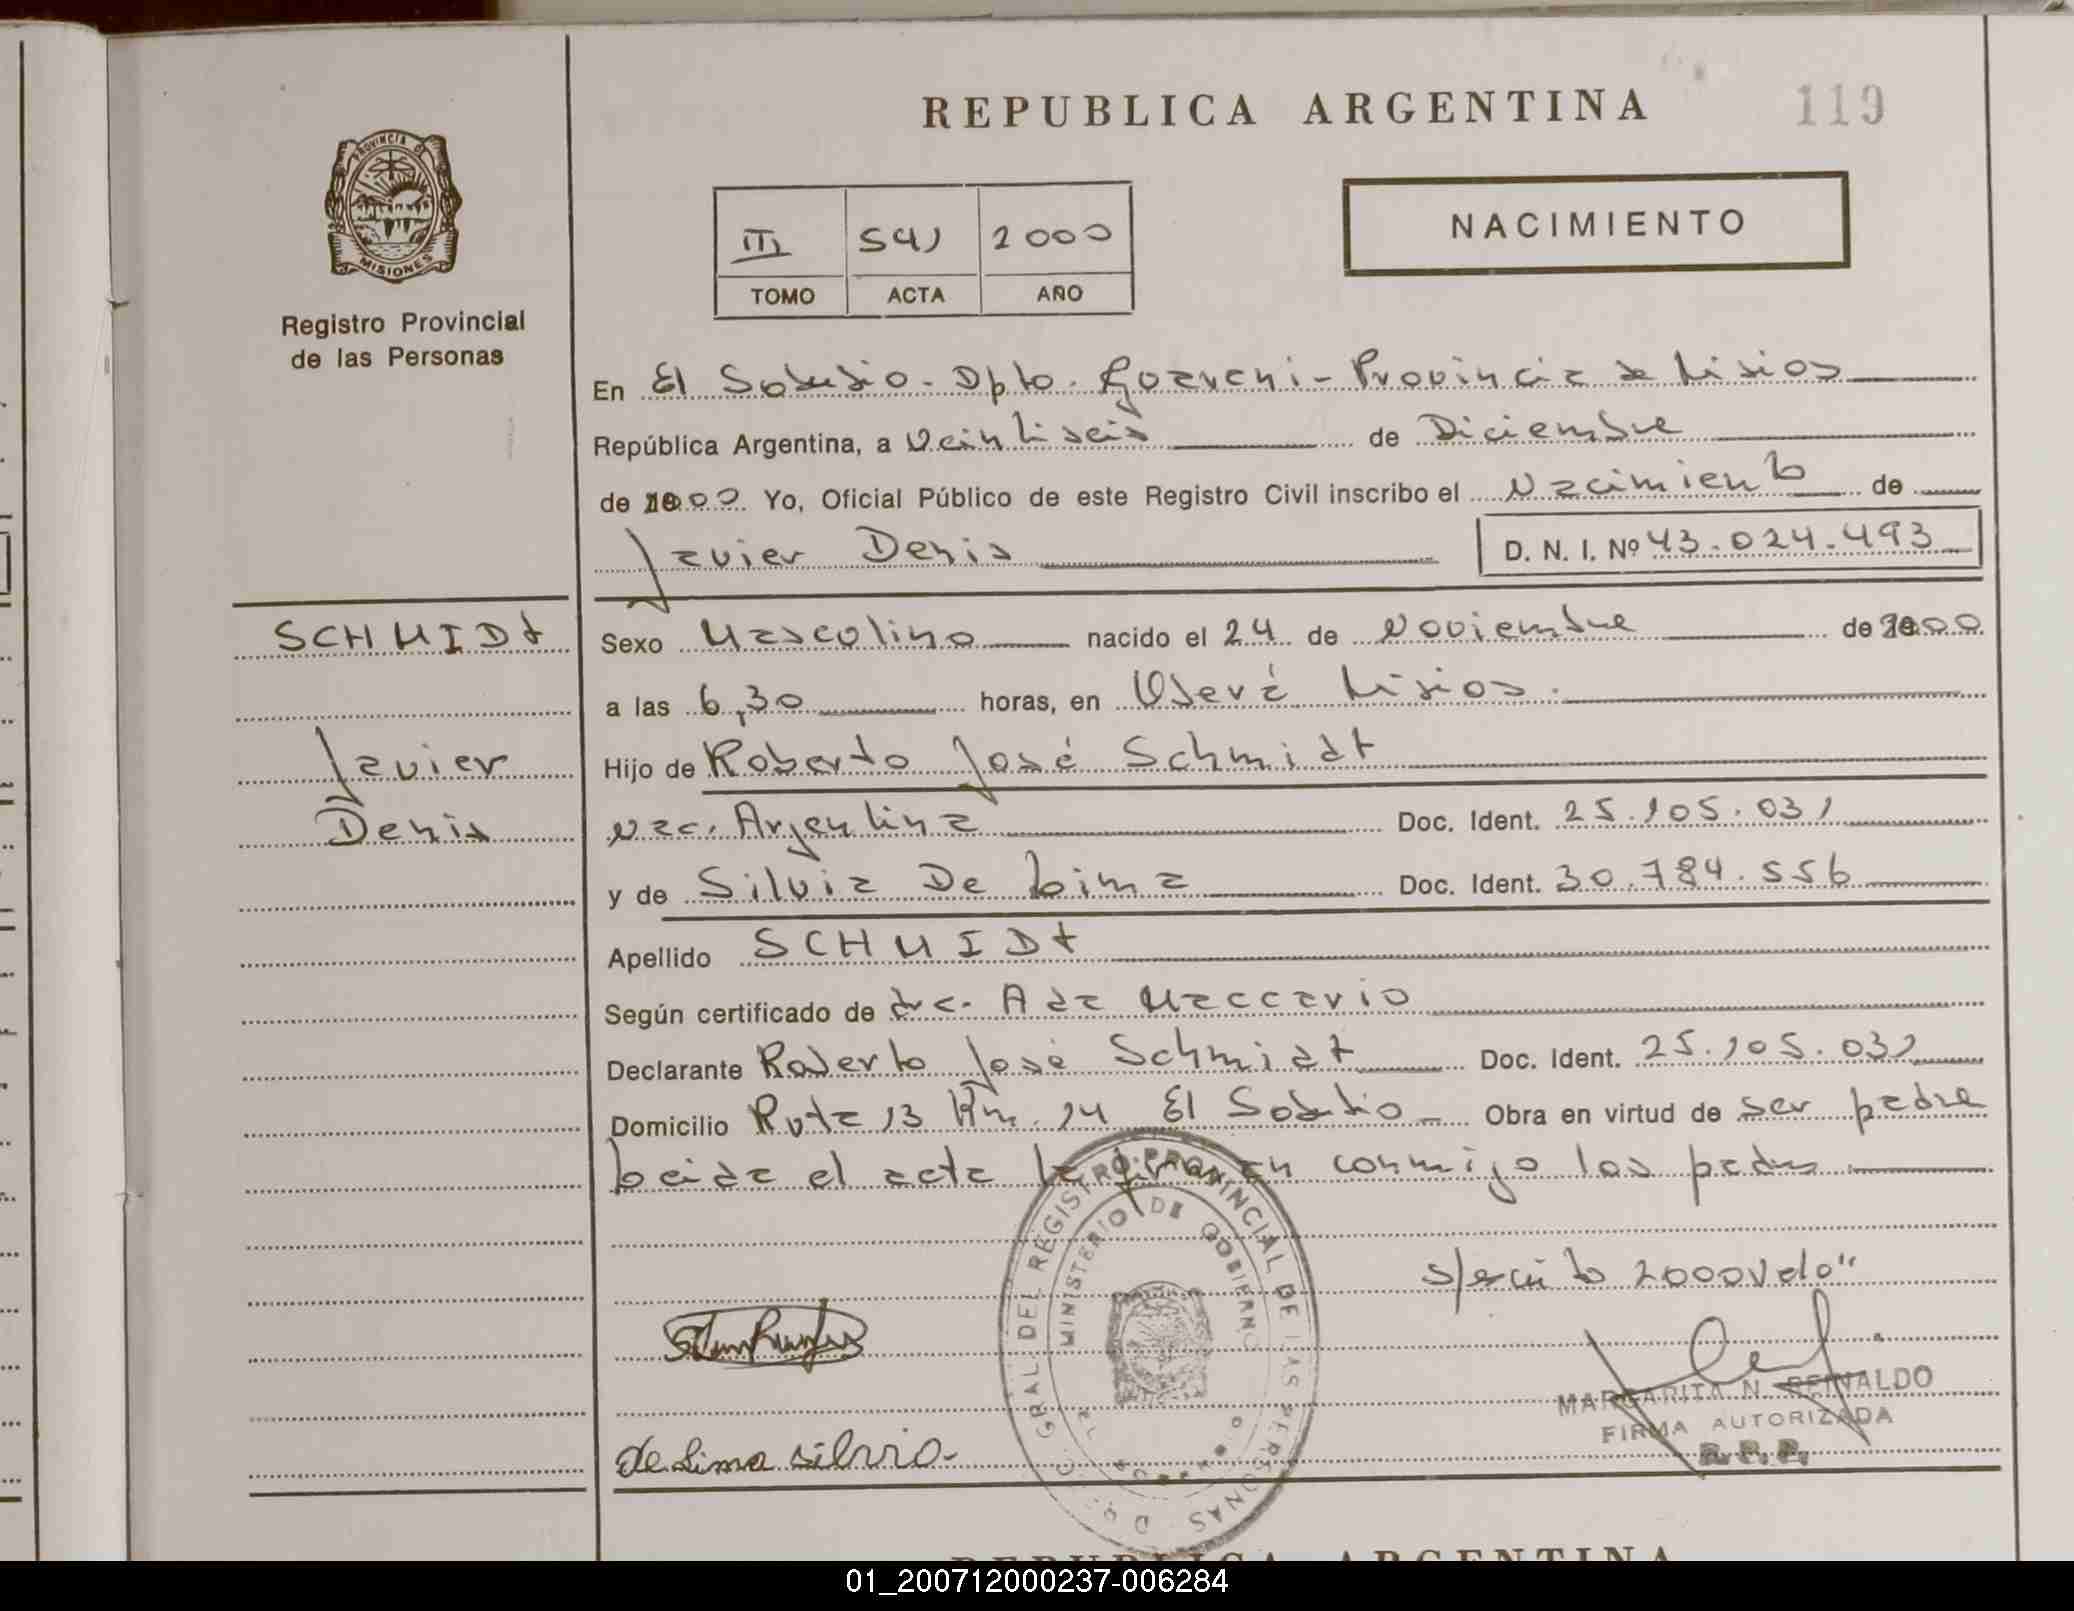 REPUBLICA ARGENTINA
119
PROVINCIA DE
MISIONES
Registro Provincial
de las Personas
III 541 2000
TOMO ACTA AÑO
NACIMIENTO
En El Soberbio - Dpto. Guarani - Provincia de Misiones
República Argentina, a Veintiseis de Diciembre
de 2000 Yo, Oficial Público de este Registro Civil inscribo el Nacimiento de
Javier Denis D. N. I. Nº 43.024.493
SCHMIDt
Javier
Denis
Sexo Masculino nacido el 24 de Noviembre de 2000
a las 6,30 horas, en Oberá Misiones.
Hijo de Roberto José Schmidt
Nac. Argentina Doc. Ident. 25.105.031
y de Silvia De Lima Doc. Ident. 30.784.556
Apellido SCHMIDt
Según certificado de dra. Ada Maccario
Declarante Roberto José Schmidt Doc. Ident. 25.105.031
Domicilio Ruta 13 Km. 14 El Soberbio Obra en virtud de ser padre
Leida el acta la firman conmigo los padres
s/escrito 2000 Vale"
GRAL DEL REGISTRO PROVINCIAL DE LAS PERSONAS
MINISTERIO DE GOBIERNO
MARGARITA N. REINALDO
FIRMA AUTORIZADA
R.P.P.
de Lima silvia
REPUBLICA ARGENTINA
01_200712000237-006284